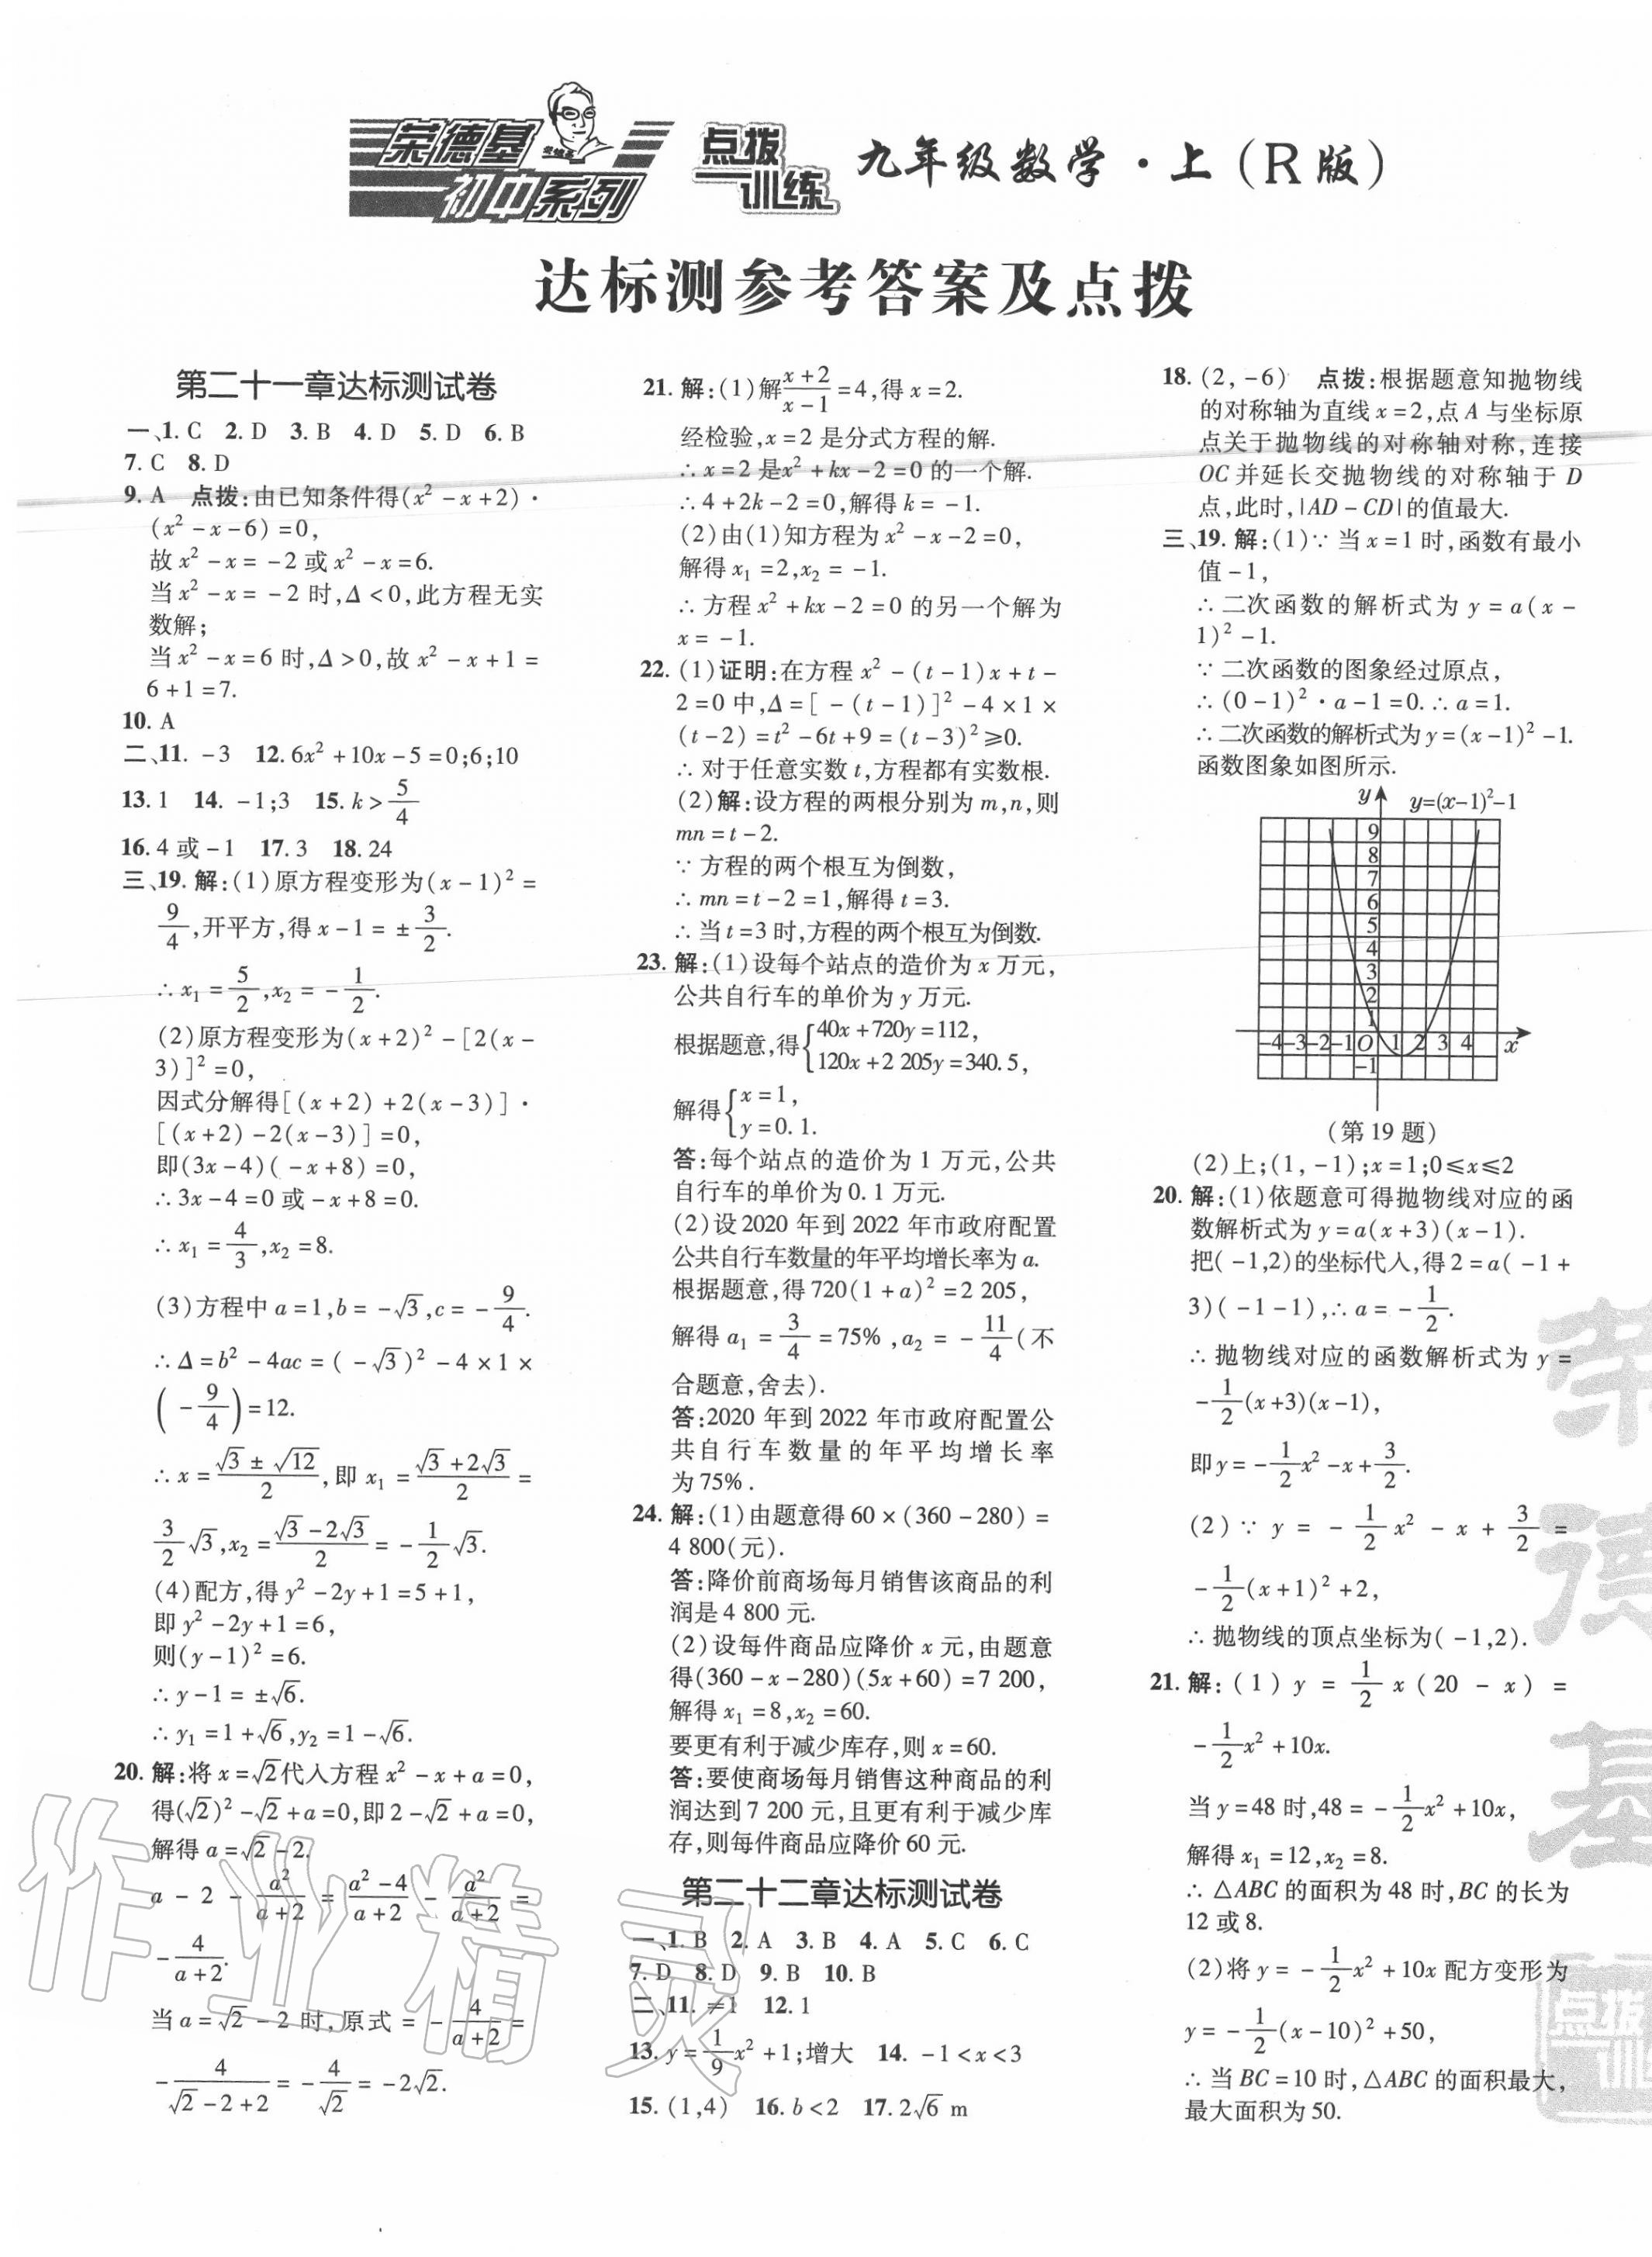 荣德基
初中系列
点拨
训练
九年级数学·上(R版)
达标测参考答案及点拨
第二十一章达标测试卷
一、1. C 2. D 3. B 4. D 5. D 6. B
7. C 8. D
9. A 点拨:由已知条件得(x²-x+2)·
(x²-x-6)=0,
故x²-x=-2或x²-x=6.
当x²-x=-2时,Δ<0,此方程无实
数解;
当x²-x=6时,Δ>0,故x²-x+1=
6+1=7.
10. A
二、11. -3 12. 6x²+10x-5=0;6;10
13. 1 14. -1;3 15. k>5/4
16. 4或-1 17. 3 18. 24
三、19. 解:(1)原方程变形为(x-1)²=
9/4,开平方,得x-1=±3/2.
∴x₁=5/2,x₂=-1/2.
(2)原方程变形为(x+2)²-[2(x-
3)]²=0,
因式分解得[(x+2)+2(x-3)]·
[(x+2)-2(x-3)]=0,
即(3x-4)(-x+8)=0,
∴3x-4=0或-x+8=0.
∴x₁=4/3,x₂=8.
(3)方程中a=1,b=-√3,c=-9/4.
∴Δ=b²-4ac=(-√3)²-4×1×
(-9/4)=12.
∴x=(√3±√12)/2,即x₁=(√3+2√3)/2=
3/2√3,x₂=(√3-2√3)/2=-1/2√3.
(4)配方,得y²-2y+1=5+1,
即y²-2y+1=6,
则(y-1)²=6.
∴y-1=±√6.
∴y₁=1+√6,y₂=1-√6.
20. 解:将x=√2代入方程x²-x+a=0,
得(√2)²-√2+a=0,即2-√2+a=0,
解得a=√2-2.
a-2-a²/(a+2)=(a²-4)/(a+2)-a²/(a+2)=
-4/(a+2).
当a=√2-2时,原式=-4/(a+2)=
-4/(√2-2+2)=-4/√2=-2√2.
21. 解:(1)解(x+2)/(x-1)=4,得x=2.
经检验,x=2是分式方程的解.
∴x=2是x²+kx-2=0的一个解.
∴4+2k-2=0,解得k=-1.
(2)由(1)知方程为x²-x-2=0,
解得x₁=2,x₂=-1.
∴方程x²+kx-2=0的另一个解为
x=-1.
22. (1)证明:在方程x²-(t-1)x+t-
2=0中,Δ=[-(t-1)]²-4×1×
(t-2)=t²-6t+9=(t-3)²≥0.
∴对于任意实数t,方程都有实数根.
(2)解:设方程的两根分别为m,n,则
mn=t-2.
∵方程的两个根互为倒数,
∴mn=t-2=1,解得t=3.
∴当t=3时,方程的两个根互为倒数.
23. 解:(1)设每个站点的造价为x万元,
公共自行车的单价为y万元.
根据题意,得{40x+720y=112,
120x+2 205y=340.5,
解得{x=1,
y=0.1.
答:每个站点的造价为1万元,公共
自行车的单价为0.1万元.
(2)设2020年到2022年市政府配置
公共自行车数量的年平均增长率为a.
根据题意,得720(1+a)²=2 205,
解得a₁=3/4=75%,a₂=-11/4(不
合题意,舍去).
答:2020年到2022年市政府配置公
共自行车数量的年平均增长率
为75%.
24. 解:(1)由题意得60×(360-280)=
4 800(元).
答:降价前商场每月销售该商品的利
润是4 800元.
(2)设每件商品应降价x元,由题意
得(360-x-280)(5x+60)=7 200,
解得x₁=8,x₂=60.
要更有利于减少库存,则x=60.
答:要使商场每月销售这种商品的利
润达到7 200元,且更有利于减少库
存,则每件商品应降价60元.
第二十二章达标测试卷
一、1. B 2. A 3. B 4. A 5. C 6. C
7. D 8. D 9. B 10. B
二、11. ≠1 12. 1
13. y=1/9x²+1;增大 14. -1<x<3
15. (1,4) 16. b<2 17. 2√6 m
18. (2,-6) 点拨:根据题意知抛物线
的对称轴为直线x=2,点A与坐标原
点关于抛物线的对称轴对称,连接
OC并延长交抛物线的对称轴于D
点,此时,|AD-CD|的值最大.
三、19. 解:(1)∵当x=1时,函数有最小
值-1,
∴二次函数的解析式为y=a(x-
1)²-1.
∵二次函数的图象经过原点,
∴(0-1)²·a-1=0.∴a=1.
∴二次函数的解析式为y=(x-1)²-1.
函数图象如图所示.
y y=(x-1)²-1
9
8
7
6
5
4
3
2
1
-4 -3 -2 -1 O 1 2 3 4 x
-1
(第19题)
(2)上;(1,-1);x=1;0≤x≤2
20. 解:(1)依题意可得抛物线对应的函
数解析式为y=a(x+3)(x-1).
把(-1,2)的坐标代入,得2=a(-1+
3)(-1-1),∴a=-1/2.
∴抛物线对应的函数解析式为y=
-1/2(x+3)(x-1),
即y=-1/2x²-x+3/2.
(2)∵y=-1/2x²-x+3/2=
-1/2(x+1)²+2,
∴抛物线的顶点坐标为(-1,2).
21. 解:(1)y=1/2x(20-x)=
-1/2x²+10x.
当y=48时,48=-1/2x²+10x,
解得x₁=12,x₂=8.
∴△ABC的面积为48时,BC的长为
12或8.
(2)将y=-1/2x²+10x配方变形为
y=-1/2(x-10)²+50,
∴当BC=10时,△ABC的面积最大,
最大面积为50.
作业精灵
荣德基
点拨
训练